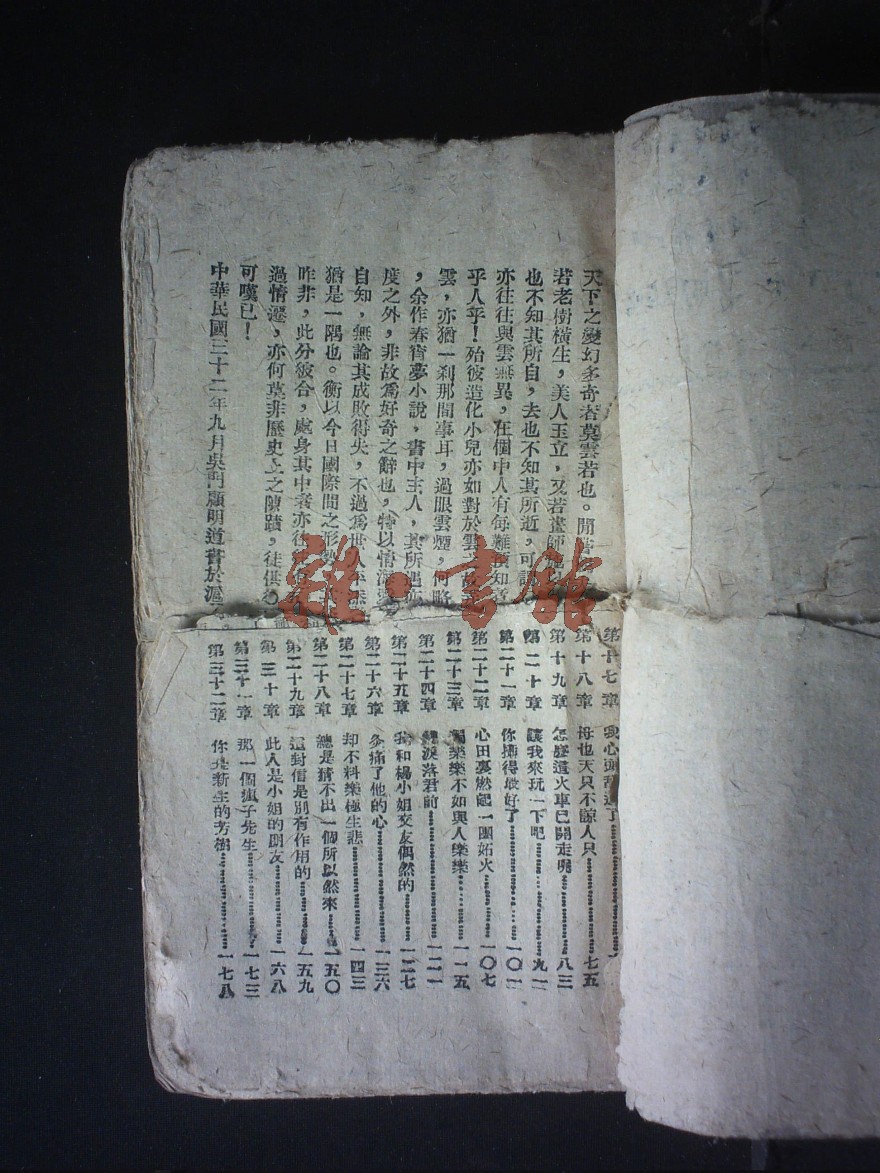 天下之變幻多奇者莫雲若也。閒嘗
若老樹橫生，美人玉立，又若畫師
也不知其所自，去也不知其所逝，可謂
亦往往與雲無異，在個中人有每難預知者
乎人乎！殆彼造化小兒亦如對於雲
雲，亦猶一刹那間事耳，過眼雲煙，何
，余作春宵夢小說，書中主人，其所遇亦
度之外，非故爲好奇之辭也，特以情海
自知，無論其成敗得失，不過爲世人
猶是一隅也。衡以今日國際間之形勢
昨非，此分彼合，處身其中者亦往
過情遷，亦何莫非歷史上之陳蹟，徒供
可嘆已！
中華民國三十二年九月吳門顧明道書於滬
第十七章 我心頭
第十八章 母也天只不諒人只 七五
第十九章 怎麼這火車已開走呢 八三
第二十章 讓我來玩一下吧 九二
第二十一章 你 得最好了 一〇一
第二十二章 心田裏燃起一團妬火 一〇七
第二十三章 獨樂樂不如與人樂樂 一一五
第二十四章 淚落君前 一二一
第二十五章 我和楊小姐交友偶然的 一二七
第二十六章 多痛了他的心 一三六
第二十七章 却不料樂極生悲 一四三
第二十八章 總是猜不出一個所以然來 一五〇
第二十九章 這封信是別有作用的 一五九
第三十章 此人是小姐的朋友 一六八
第三十一章 那一個瘋子先生 一七三
第三十二章 你是新生的芳樹 一七八
雜·書館